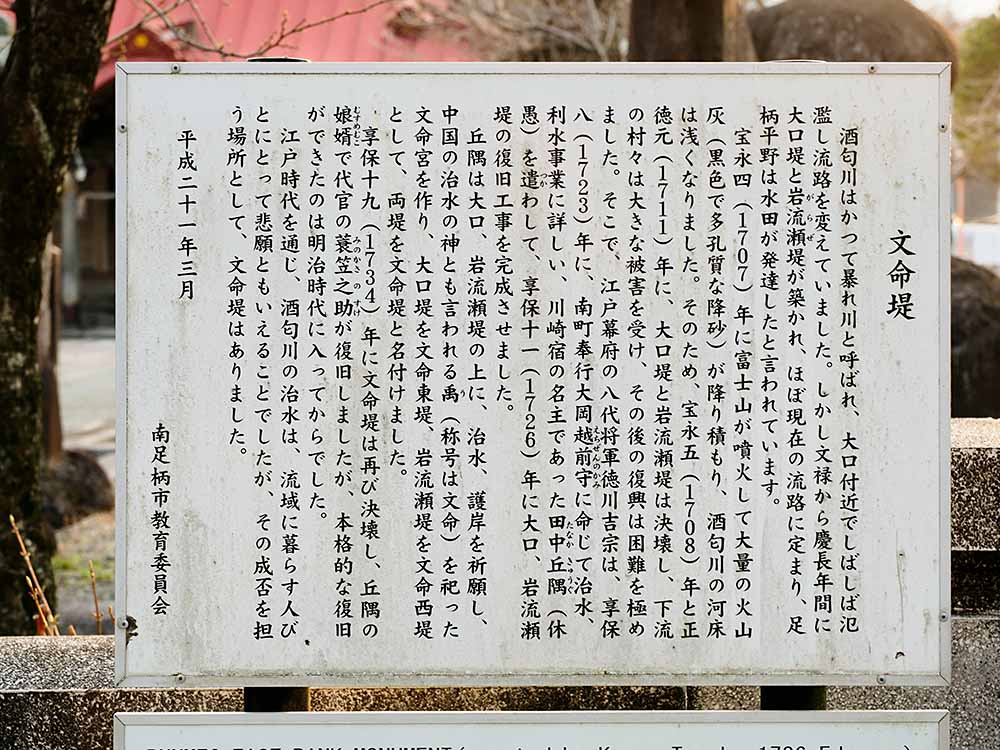 文命堤
酒匂川はかつて暴れ川と呼ばれ、大口付近でしばしば氾
濫し流路を変えていました。しかし文禄から慶長年間に
大口堤と岩流瀬堤が築かれ、ほぼ現在の流路に定まり、足
柄平野は水田が発達したと言われています。
宝永四(1707)年に富士山が噴火して大量の火山
灰(黒色で多孔質な降砂)が降り積もり、酒匂川の河床
は浅くなりました。そのため、宝永五(1708)年と正
徳元(1711)年に、大口堤と岩流瀬堤は決壊し、下流
の村々は大きな被害を受け、その後の復興は困難を極め
ました。そこで、江戸幕府の八代将軍徳川吉宗は、享保
八(1723)年に、南町奉行大岡越前守に命じて治水、
利水事業に詳しい、川崎宿の名主であった田中丘隅(休
愚)を遣わして、享保十一(1726)年に大口、岩流瀬
堤の復旧工事を完成させました。
丘隅は大口、岩流瀬堤の上に、治水、護岸を祈願し、
中国の治水の神とも言われる禹(称号は文命)を祀った
文命宮を作り、大口堤を文命東堤、岩流瀬堤を文命西堤
として、両堤を文命堤と名付けました。
享保十九(1734)年に文命堤は再び決壊し、丘隅の
娘婿で代官の蓑笠之助が復旧しましたが、本格的な復旧
ができたのは明治時代に入ってからでした。
江戸時代を通じ、酒匂川の治水は、流域に暮らす人び
とにとって悲願ともいえることでしたが、その成否を担
う場所として、文命堤はありました。
平成二十一年三月
南足柄市教育委員会